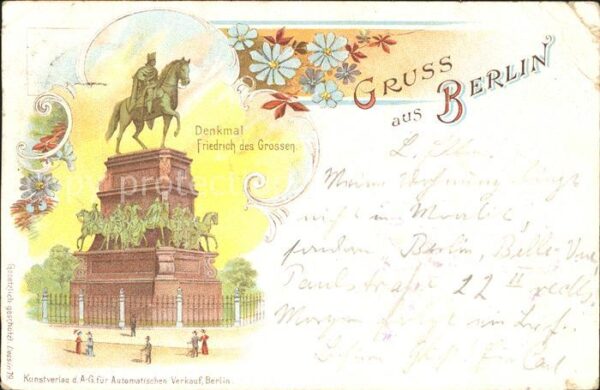 GRUSS
aus BERLIN
Denkmal
Friedrich des Grossen.
Meine Wohnung liegt
nicht in Moabit,
sondern Berlin, Belle-Vue
Paulstrasse 22 II rechts
Morgen ein
Carl
Gesetzlich geschützt
Kunstverlag d. A-G. für Automatischen Verkauf, Berlin.